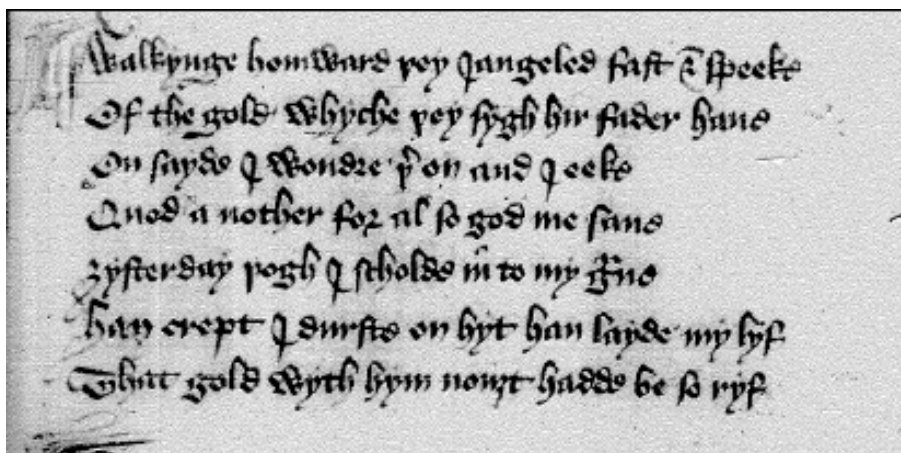 Walkynge homward þey Jangeled fast & speeke
Of the gold whyche þey sygh hir fader haue
On sayde I wondre þ' on and I eeke
Quod a nother for al so god me saue
ȝysterday þogh I scholde in to my gᵃue
han crept I durste on hyt han layde my lyf
That gold wyth hym nouȝt hadde be so ryf